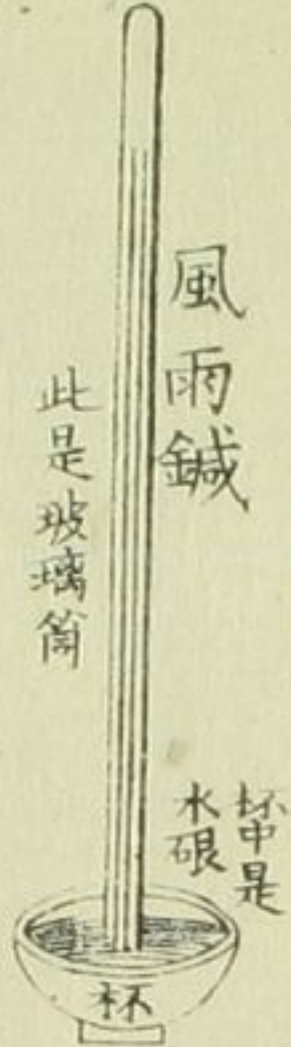 風雨鍼
此是玻璃筒
坏中是
水硍
杯